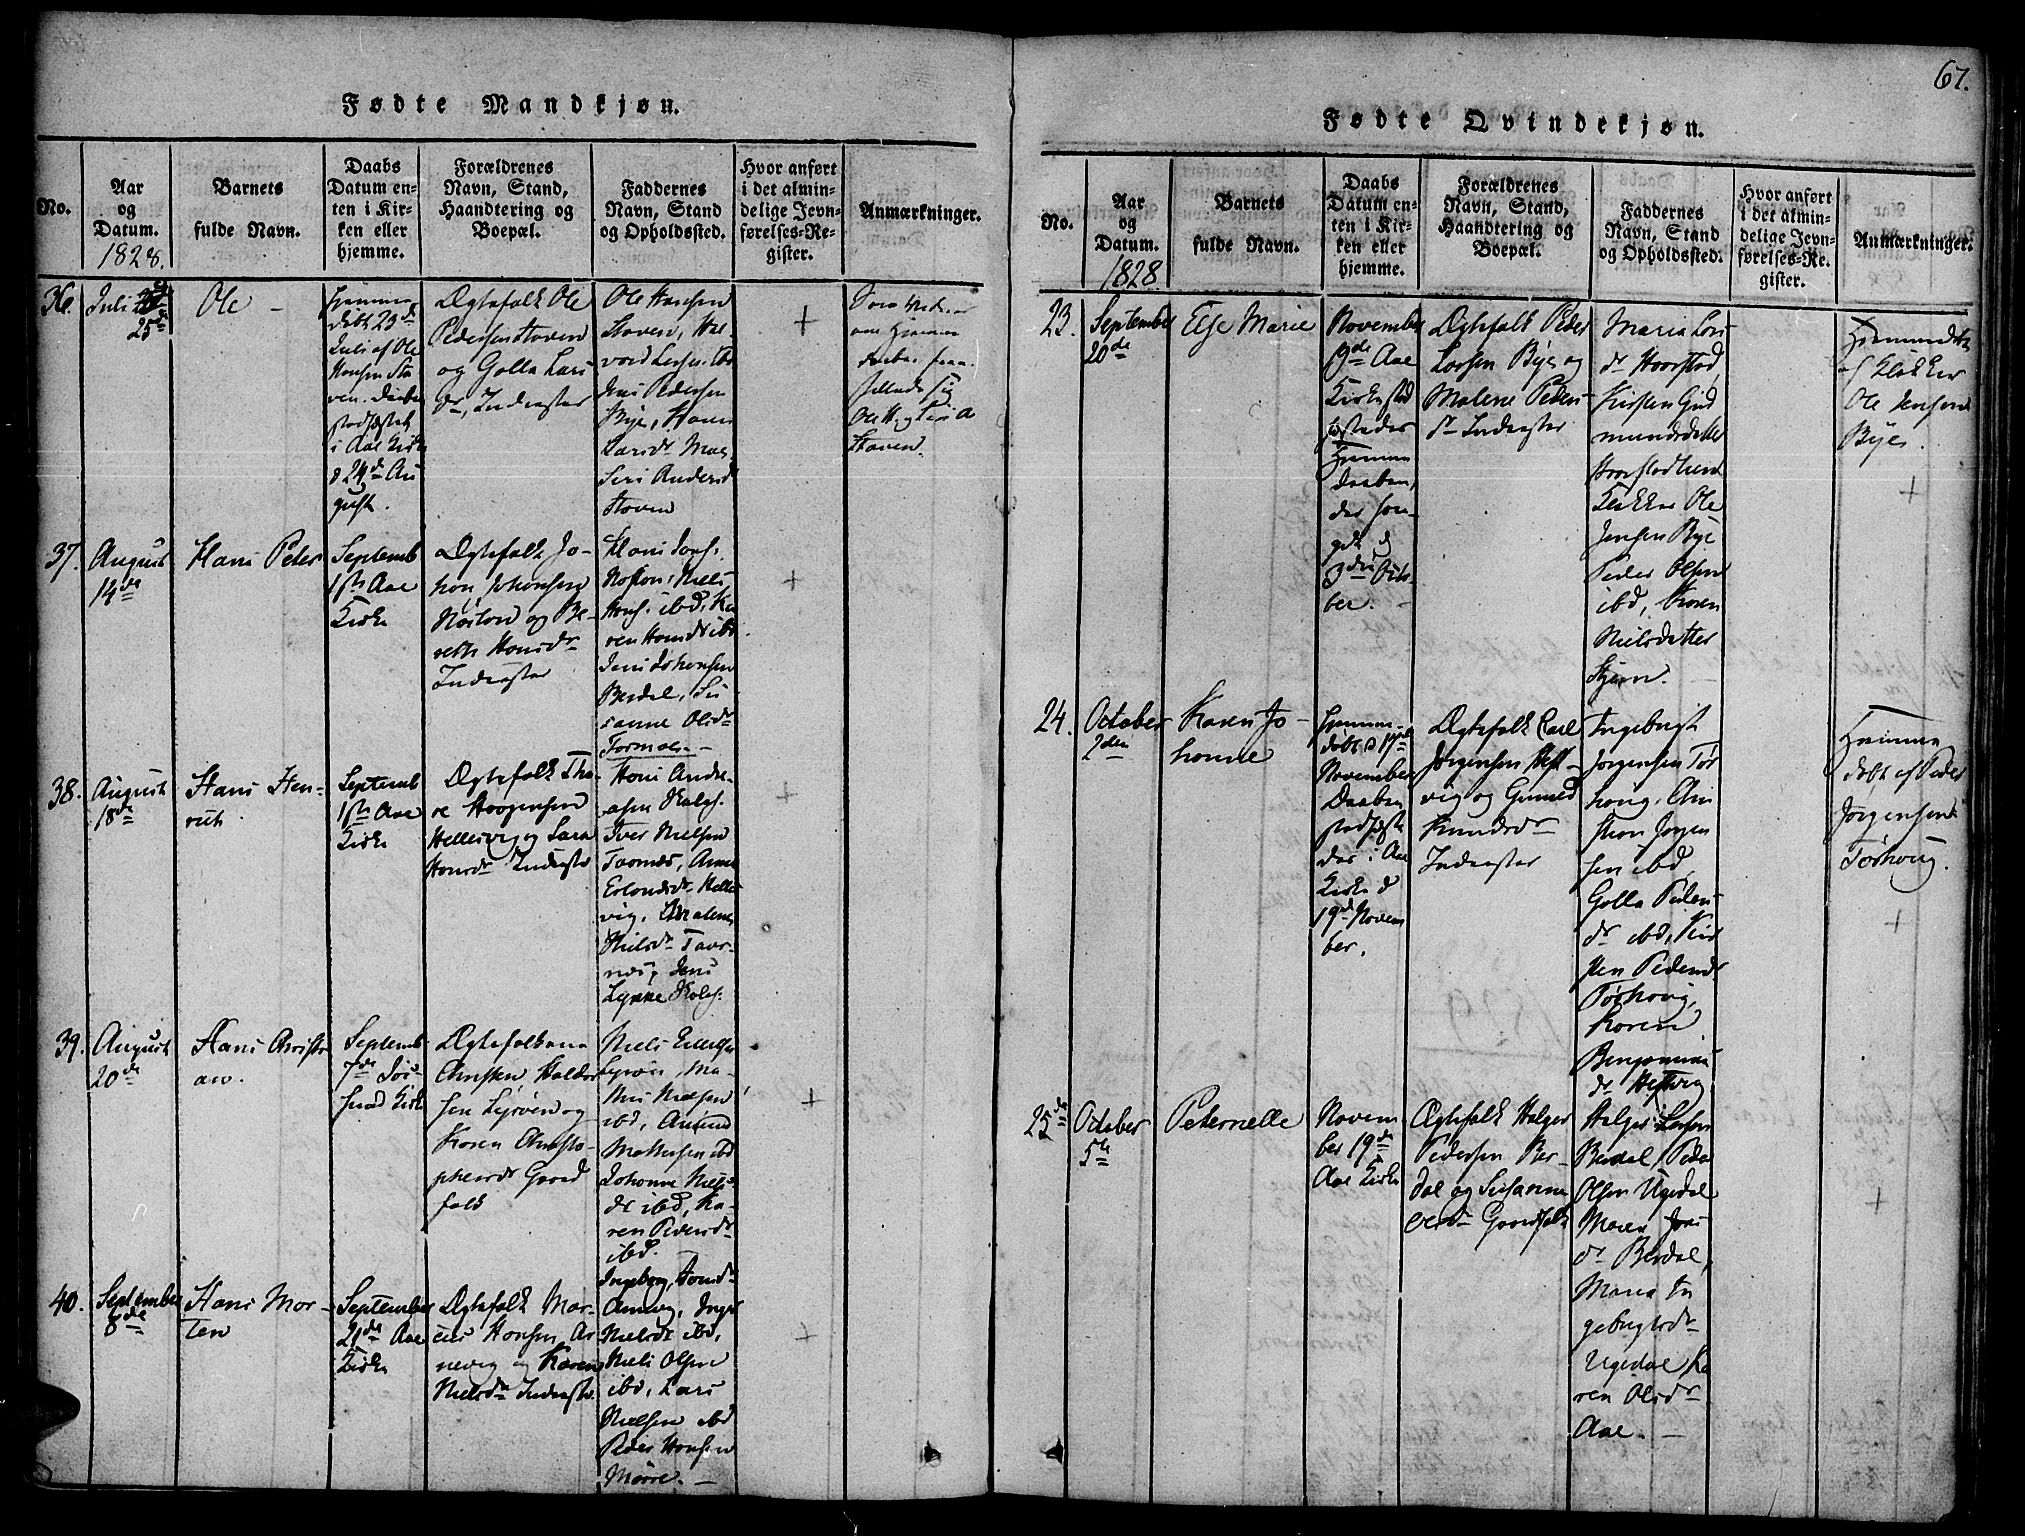 67.
Fødte Mandkjøn.
No.
Aar
og
Datum.
1828.
Barnets
fulde Navn.
Daabs
Datum en-
ten i Kir-
ken eller
hjemme.
Forældrenes
Navn, Stand,
Haandtering og
Boepæl.
Faddernes
Navn, Stand
og Opholdssted.
Hvor anført
i det almin-
delige Jevn-
førelses-Re-
gister.
Anmærkninger.
36.
Juli
25de
Ole -
hjemme
døbt 23de
Juli af Ole
Hansen Sto
ven. Daaben
stadfæstet
i Aae Kirke
d 24de Au
gust.
Ægtefolk Ole
Pedersen Stoven
og Golla Lars
dr, Inderster
Ole Hansen
Stoven, Hal
vord
Jens Pedersen
Bye, Maren
Larsdr
Siri Andersdr
Stoven
+
om Hjemme
daaben frem
stillede sig
Ole H. og Siri A
Stoven.
37.
August
14de
Hans Peter
Septemb
1ste Aae
Kirke
Ægtefolk Jo-
han Johansen
og Be-
reth Hansdr
Inderster
Niels
Hans. ibd, Ka
ren Hansdr ibd
Jens Johansen
Berdal, Su
sanne Olsdr
Formoe. -
+
38.
August
18de
Hans Hen-
rich
Septemb
1ste Aae
Kirke
Ægtefolk Tho-
re Haagensen
Hellesvig og Sara
Hansdr Inderster
Hans Andre-
asen
Iver Nielsen
Taarnes, Anne
Erlandsdr Helle
vig, Malene
Nielsdr Taar-
nes, Jens
Lykke
+
39.
August
20de
Hans Christi
an.
Septemb
7de
Kirke
Ægtefolkene
Christen Haldor
sen Lysøen og
Karen Christo-
phersdr Gaard
folk
Niels
Lysøen, Ma-
Nielsen
ibd, Amund
Mathesen ibd
Johanne Niels
dr ibd, Ka-
ren Pedersdr
ibd.
+
40.
September
8de
Hans Mor-
ten
September
21de Aae
Kirke
Ægtefolk Mar-
cus Hansen Ar
nevig og Karen
Nielsdr Inderster
Ingeborg
Arnevig, Inger
Nielsdr ibd,
Niels Olsen
ibd, Lars
Nielsen ibd
Peder Hansen
Mørre. -
+
Fødte Qvindekjøn.
No.
Aar
og
Datum.
1828
Barnets
fulde Navn.
Daabs
Datum en-
ten i Kir-
ken eller
hjemme.
Forældrenes
Navn, Stand,
Haandtering og
Boepæl.
Faddernes
Navn, Stand
og Opholdssted.
Hvor anført
i det almin-
delige Jevn-
førelses-Re-
gister.
Anmærkninger.
23.
September
20de
Else Marie
November
9de Aae
Kirke stad
fæstedes
Hjemme
daaben,
der fore-
gik d
3die Octo
ber.
Ægtefolk Peder
Larsen Bye og
Malene Peders
dr Inderster
Maria Lars
dr Haarstad
Kirsten Gud
mundsdatter
Haarstad
Klokker Ole
Jensen Bye
Peder Olsen
ibd, Karen
Nielsdatter
Hjemmedøbt
af Klokker
Ole Jensen
Bye.
+
24.
October
2den
Karen Jo-
hanne
hjemme-
døbt d 17de
November
Daaben
stadfæste
des i Aae
Kirke d
19de Novem
ber.
Ægtefolk Carl
Jørgensen Heft-
vig og Gunild
Knudsdr
Inderster
Ingebrigt
Jørgensen Tør
houg, Chri
stian Jørgen
sen ibd,
Golla Peders
dr ibd, Kir
sten Pedersdr
Tørhoug,
Karen
Benjamins
dr Heftvig
Hjemme
døbt af Peder
Jørgensen
Tørhoug.
+
25de
October
5te
Peternelle
Novem
ber 19de
Aae Kirke
Ægtefolk Holger
Pedersen Ber-
dal og Susanna
Gaardfolk
Holger Larsen
Berdal, Peder
Olsen Ugedal
Maren Jens
dr Berdal,
Maria In
gebrigtsdr
Ugedal Ka
ren Olsdr
Aae. -
+